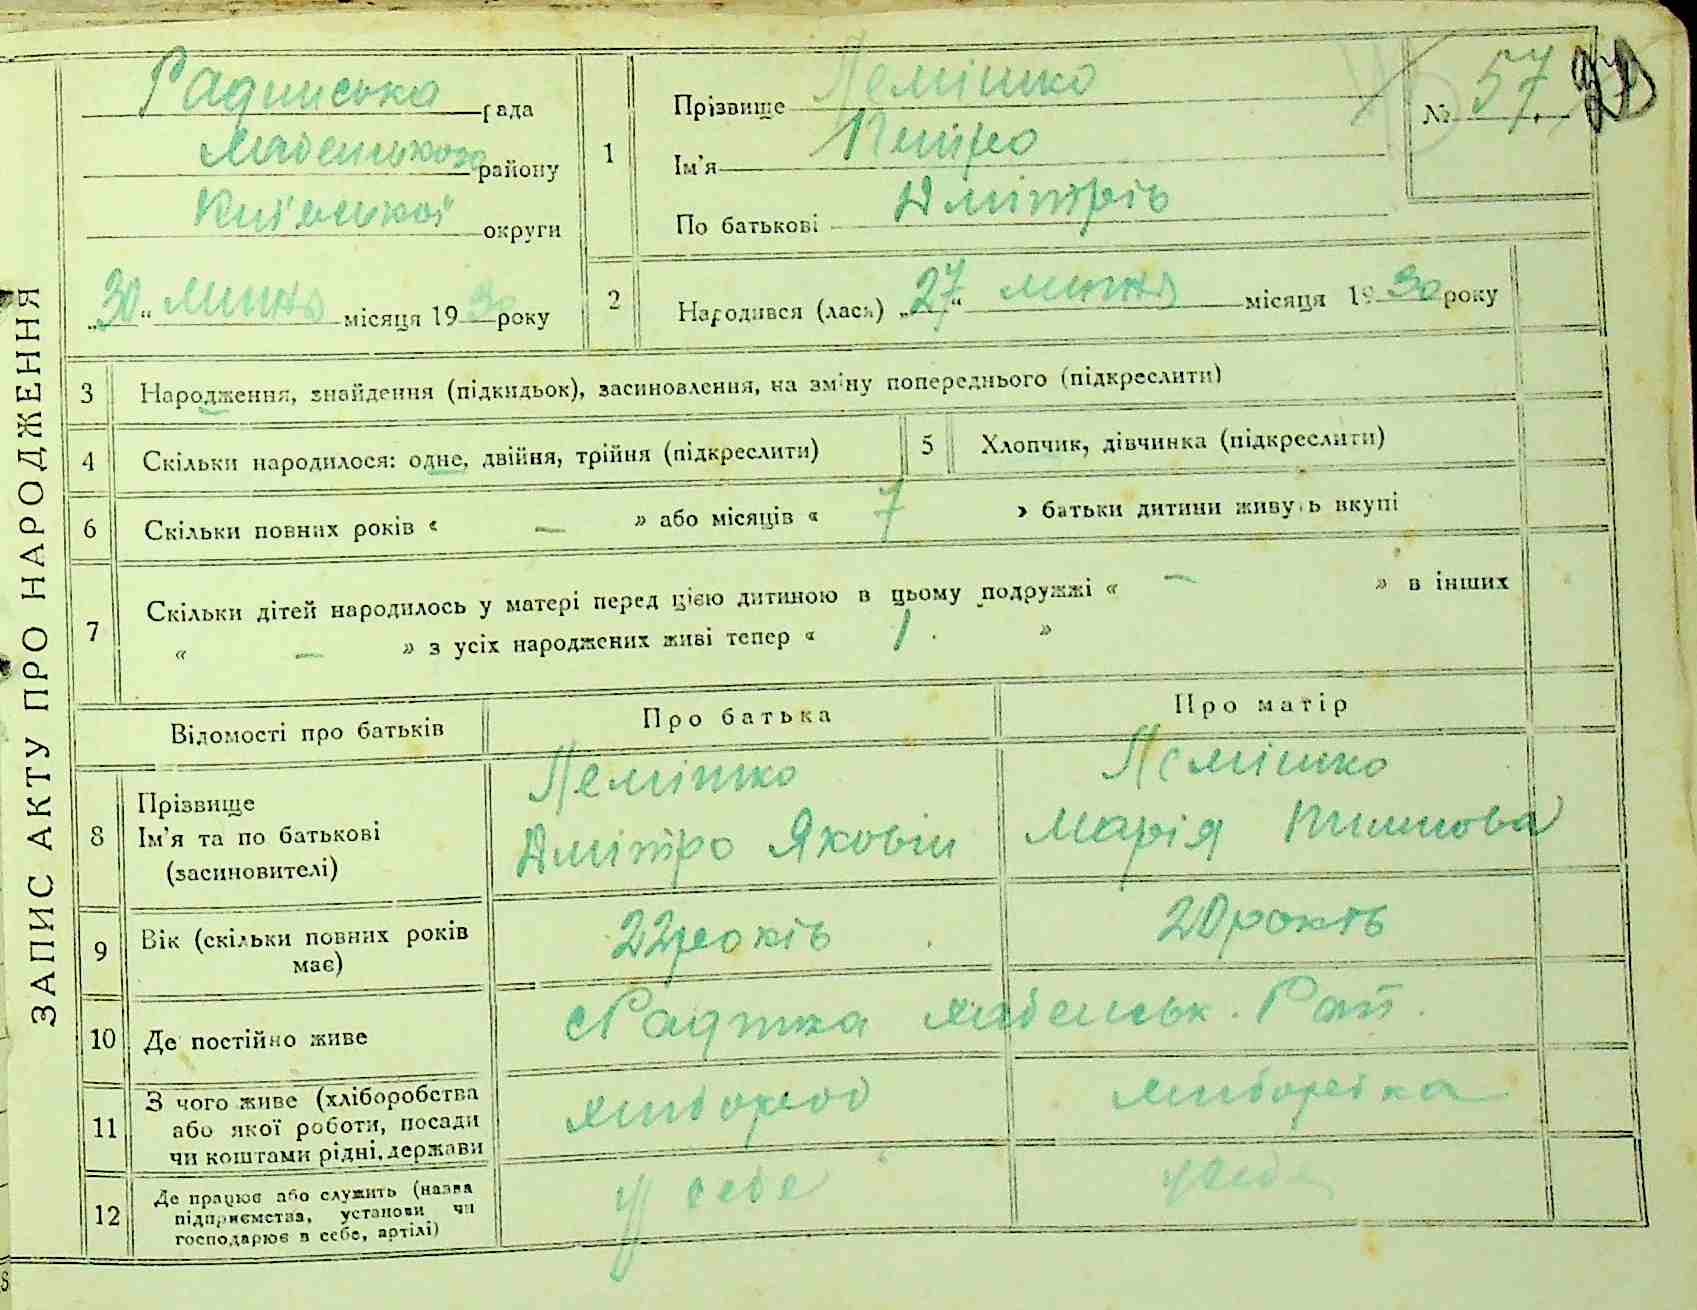 ЗАПИС АКТУ ПРО НАРОДЖЕННЯ
Радинська рада
району
Київської округи
„30“ липня місяця 1930 року
1
Прізвище Лемішко
Ім'я Петро
По батькові Дмітрів
№ 57
2 Народився (лася) „27“ липня місяця 1930 року
3 Народження, знайдення (підкидьок), засиновлення, на зміну попереднього (підкреслити)
4 Скільки народилося: одне, двійня, трійня (підкреслити)
5 Хлопчик, дівчинка (підкреслити)
6 Скільки повних років « — » або місяців « 7 » батьки дитини живуть вкупі
7 Скільки дітей народилось у матері перед цією дитиною в цьому подружжі « — » в інших
« — » з усіх народжених живі тепер « 1 »
Відомості про батьків
Про батька
Про матір
8 Прізвище
Ім'я та по батькові
(засиновителі)
Лемішко
Дмітро Яковів
Лемішко
Марія
9 Вік (скільки повних років
має)
22 років
20 років
10 Де постійно живе
с Радинка Рай.
11 З чого живе (хліборобства
або якої роботи, посади
чи коштами рідні, держави
хлібороб
хліборобка
12 Де працює або служить (назва
підприємства, установи чи
господарює в себе, артілі)
у себе
у себе